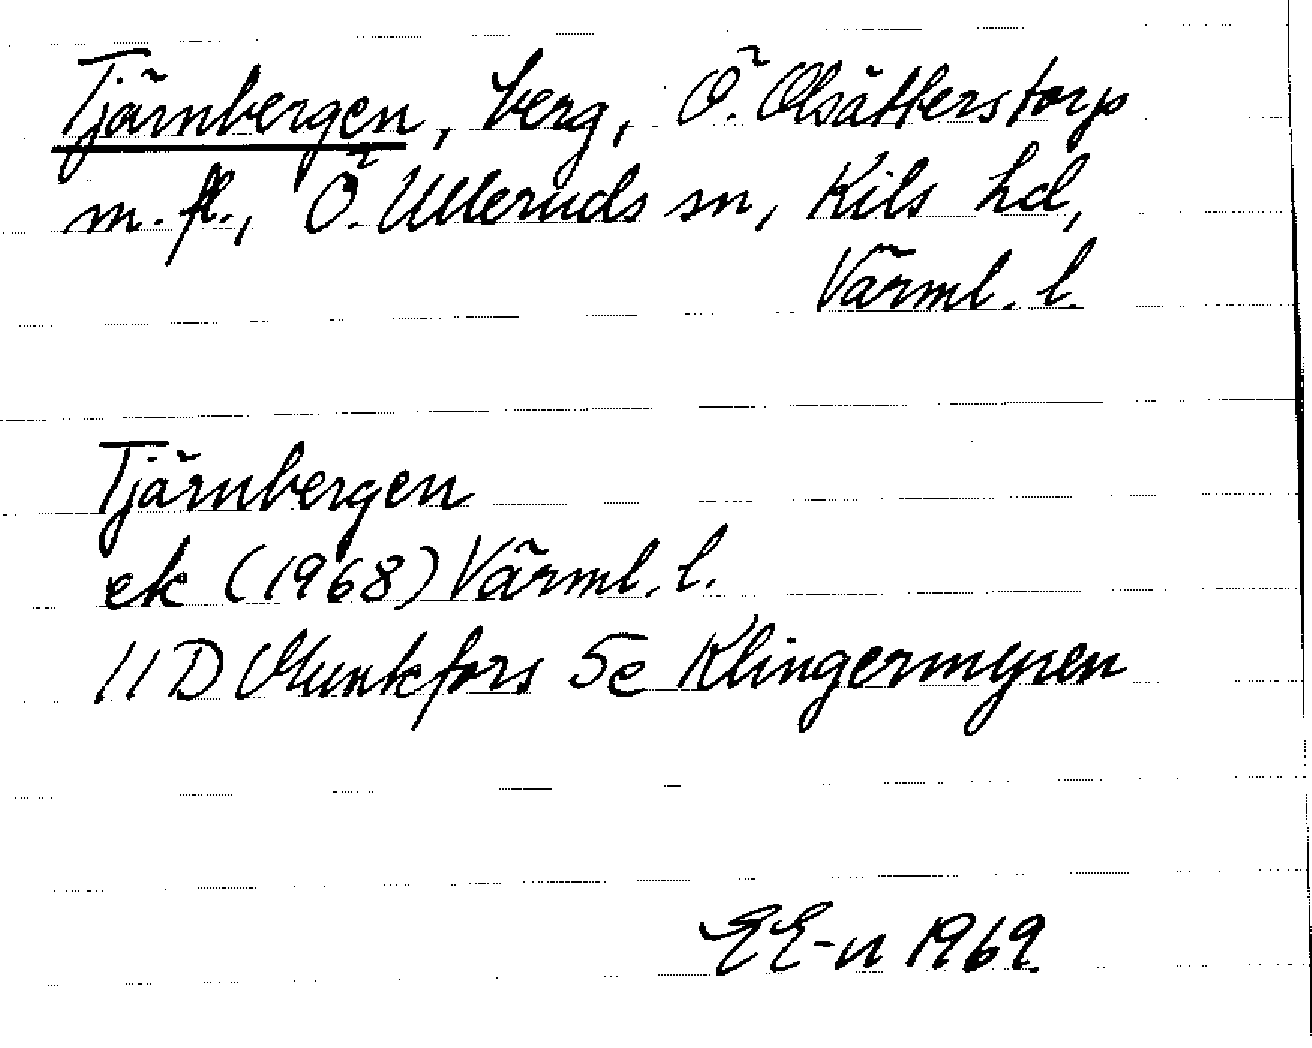 Tjärnbergen, berg, Ö. Olsätterstorp
m. fl., Ö. Ulleruds sn, Kils hd,
Värml. l.
Tjärnbergen
ek (1968) Värml. l.
11 D Munkfors 5e Klingermyren
EE-n 1969